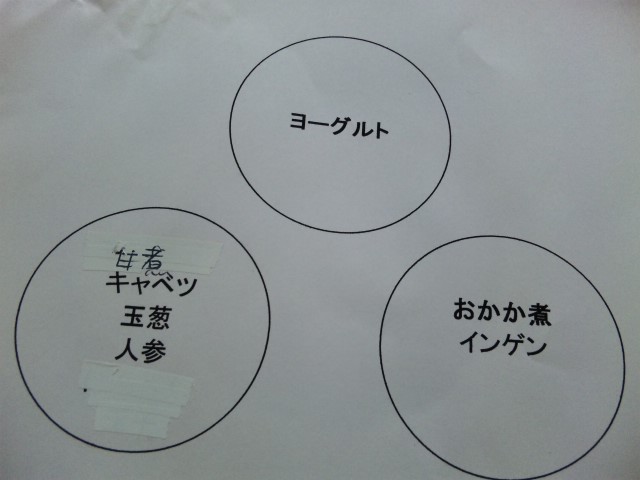 ヨーグルト
甘煮
キャベツ
玉葱
人参
おかか煮
インゲン